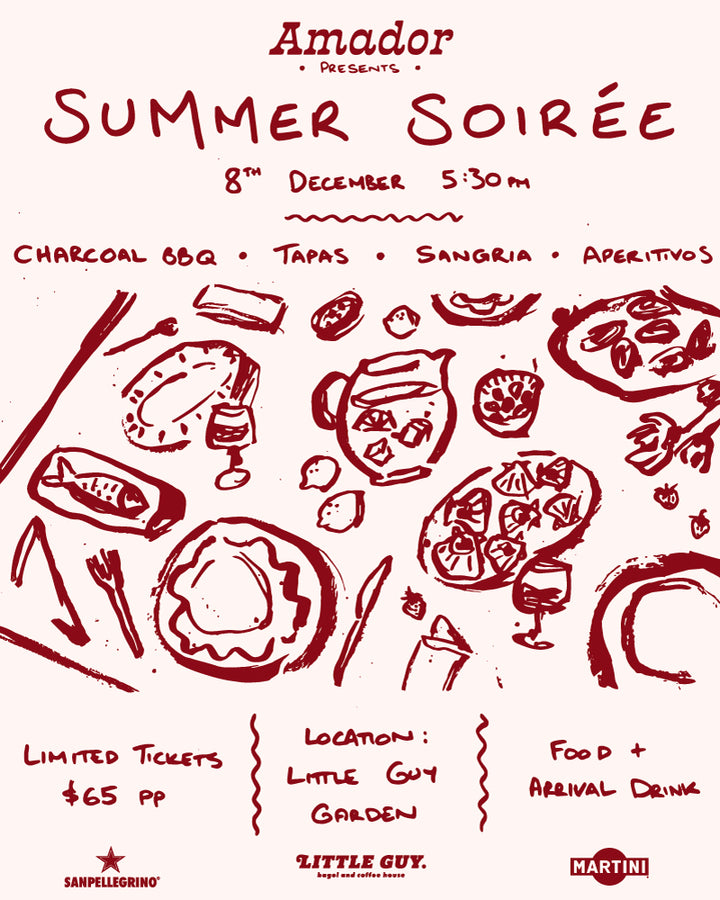 Amador
• PRESENTS •
SUMMER SOIRÉE
8TH DECEMBER 5:30PM
CHARCOAL BBQ • TAPAS • SANGRIA • APERITIVOS
LIMITED TICKETS
$65 PP
LOCATION:
LITTLE GUY
GARDEN
FOOD +
ARRIVAL DRINK
SANPELLEGRINO®
LITTLE GUY.
bagel and coffee house
MARTINI